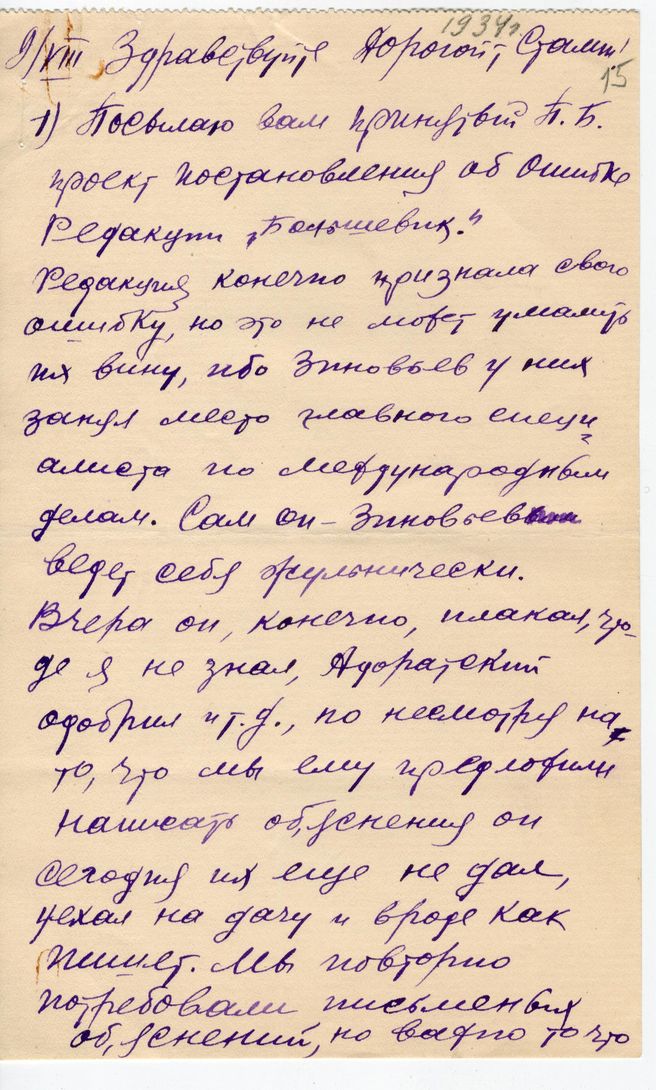 1934г.
9/VIII Здравствуйте Дорогой т. Сталин!
15
1) Посылаю вам принятый П.Б.
проект постановления об ошибке
Редакции „Большевик."
Редакция конечно признала свою
ошибку, но это не может умалить
их вину, ибо Зиновьев у них
занял место главного специ
алиста по международным
делам. Сам он – Зиновьев
ведет себя жульнически.
Вчера он, конечно, плакал, что-
де я не знал, Адоратский
одобрил и т.д., но несмотря на
то, что мы ему предложили
написать об,яснения он
сегодня их еще не дал,
уехал на дачу и вроде как
пишет. Мы повторно
потребовали письменых
об,яснений, но важно то что